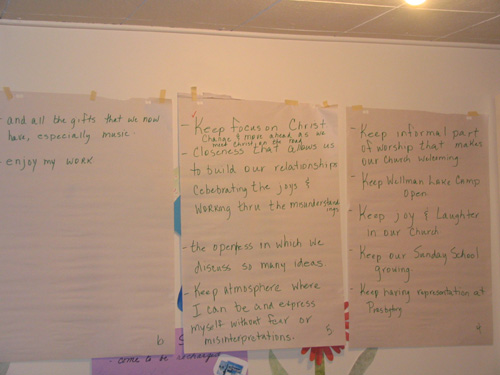 - and all the gifts that we now
have, especially music.
- enjoy my work
6
- Keep focus on Christ
Change & move ahead as we
meet Christ on the road
- Closeness that allows us
to build our relationships
Celebrating the joys &
working thru the misunderstand
ings
- the openness in which we
discuss so many ideas.
- Keep atmosphere where
I can be and express
myself without fear or
misinterpretations.
5
- Keep informal part
of worship that makes
our Church welcoming
- Keep Wellman Lake Camp
Open
- Keep joy & Laughter
in our Church
- Keep our Sunday School
growing
- Keep having representation at
Presbytry
4
- come to be